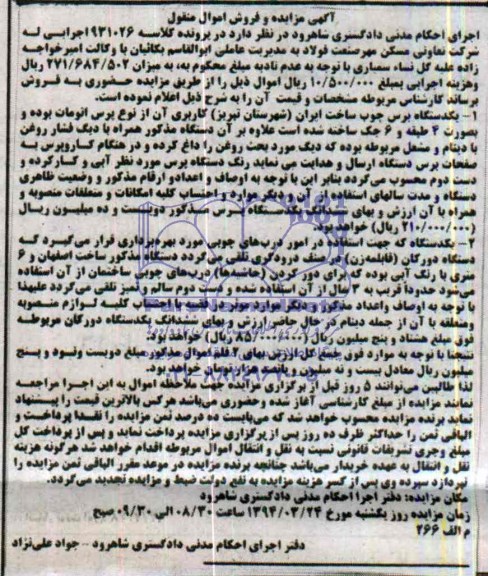 آگهی مزایده و فروش اموال منقول
اجرای احکام مدنی دادگستری شاهرود در نظر دارد در پرونده کلاسه ۹۳۱۰۲۶ اجرایی له
شرکت تعاونی مسکن مهرصنعت فولاد به مدیریت عاملی ابوالقاسم بکائیان با وکالت امیرخواجه
زاده علیه گل نساء سمیاری با توجه به عدم تادیه مبلغ محکوم به، به میزان ۲۷۱/۶۸۴/۵۰۲ ریال
وهزینه اجرایی بمبلغ ۱۰/۵۰۰/۰۰۰ ریال اموال ذیل را از طریق مزایده حضوری به فروش
برساند کارشناس مربوطه مشخصات و قیمت آن را به شرح ذیل اعلام نموده است.
۱- یکدستگاه پرس چوب ساخت ایران (شهرستان تبریز) کاربری آن از نوع پرس اتومات بوده و
بصورت ۴ طبقه و ۶ جک ساخته شده است علاوه بر آن دستگاه مذکور همراه با دیگ فشار روغن
با دینام و مشعل مربوطه بوده که دیگ مورد بحث روغن را داغ کرده و در هنگام کاروپرس به
صفحات پرس دستگاه ارسال و هدایت می نماید رنگ دستگاه پرس مورد نظر آبی و کارکرده و
دست دوم محسوب می‌گردد بنابر این با توجه به اوصاف و اعدادو ارقام مذکور و وضعیت ظاهری
دستگاه و مدت سالهای استفاده از آن و دیگر موارد و احتساب کلیه امکانات و متعلقات منصوبه و
همراه با آن ارزش و بهای ششدانگ یکدستگاه پرس مذکور دویست و ده میلیون ریال
(۲۱۰/۰۰۰/۰۰۰ ریال) خواهد بود.
۲- یکدستگاه که جهت استفاده در امور درب‌های چوبی مورد بهره‌برداری قرار می‌گیرد که
دستگاه دورکان (فابلمه‌زن) در صنف درودگری تلقی می‌گردد دستگاه مذکور ساخت اصفهان و ۶
متری با رنگ آبی بوده که برای دور کردن (حاشیه‌ها) درب‌های چوبی ساختمان از آن استفاده
می‌شود حدوداً قریب به ۳ سال از آن استفاده شده و دست دوم سالم و تمیز تلقی می‌گردد علیهذا
با توجه به اوصاف واعداد مذکور و دیگر موارد موثر در قضیه با احتساب کلیه لوازم منصوبه
ومتعلقه با آن از جمله دینام در حال حاضر ارزش و بهای ششدانگ یکدستگاه دورکان مربوطه
فوق مبلغ هشتاد و پنج میلیون ریال (۸۵/۰۰۰/۰۰۰ ریال) خواهد بود.
نتیجتا با توجه به موارد فوق جمع کل ارزش بهای ۲ قلم اموال مذکور مبلغ دویست ونود و پنج
میلیون ریال معادل بیست و نه میلیون و پانصد هزار تومان خواهد بود.
لذا طالبین می‌توانند ۵ روز قبل از برگزاری مزایده جهت ملاحظه اموال به این اجرا مراجعه
نمایند مزایده از مبلغ کارشناسی آغاز شده وحضوری می‌باشد هرکس بالاترین قیمت را پیشنهاد
نماید برنده مزایده محسوب خواهد شد که می‌بایست ده درصد ثمن مزایده را نقدا پرداخت و
الباقی ثمن را حداکثر ظرف ده روز پس ازبرگزاری مزایده پرداخت نماید و پس از پرداخت کل
مبلغ وجری تشریفات قانونی نسبت به نقل و انتقال اموال مربوطه اقدام خواهد شد هرگونه هزینه
نقل و انتقال به عهده خریدار می‌باشد چنانچه برنده مزایده در موعد مقرر الباقی ثمن مزایده را
نپردازد سپرده وی پس از کسر هزینه مزایده به نفع دولت ضبط و مزایده تجدید می‌گردد.
مکان مزایده: دفتر اجرا احکام مدنی دادگستری شاهرود
زمان مزایده روز یکشنبه مورخ ۱۳۹۴/۰۳/۲۴ ساعت ۰۸/۳۰ الی ۰۹/۳۰ صبح
م الف ۲۶۶
دفتر اجرای احکام مدنی دادگستری شاهرود - جواد علی‌نژاد